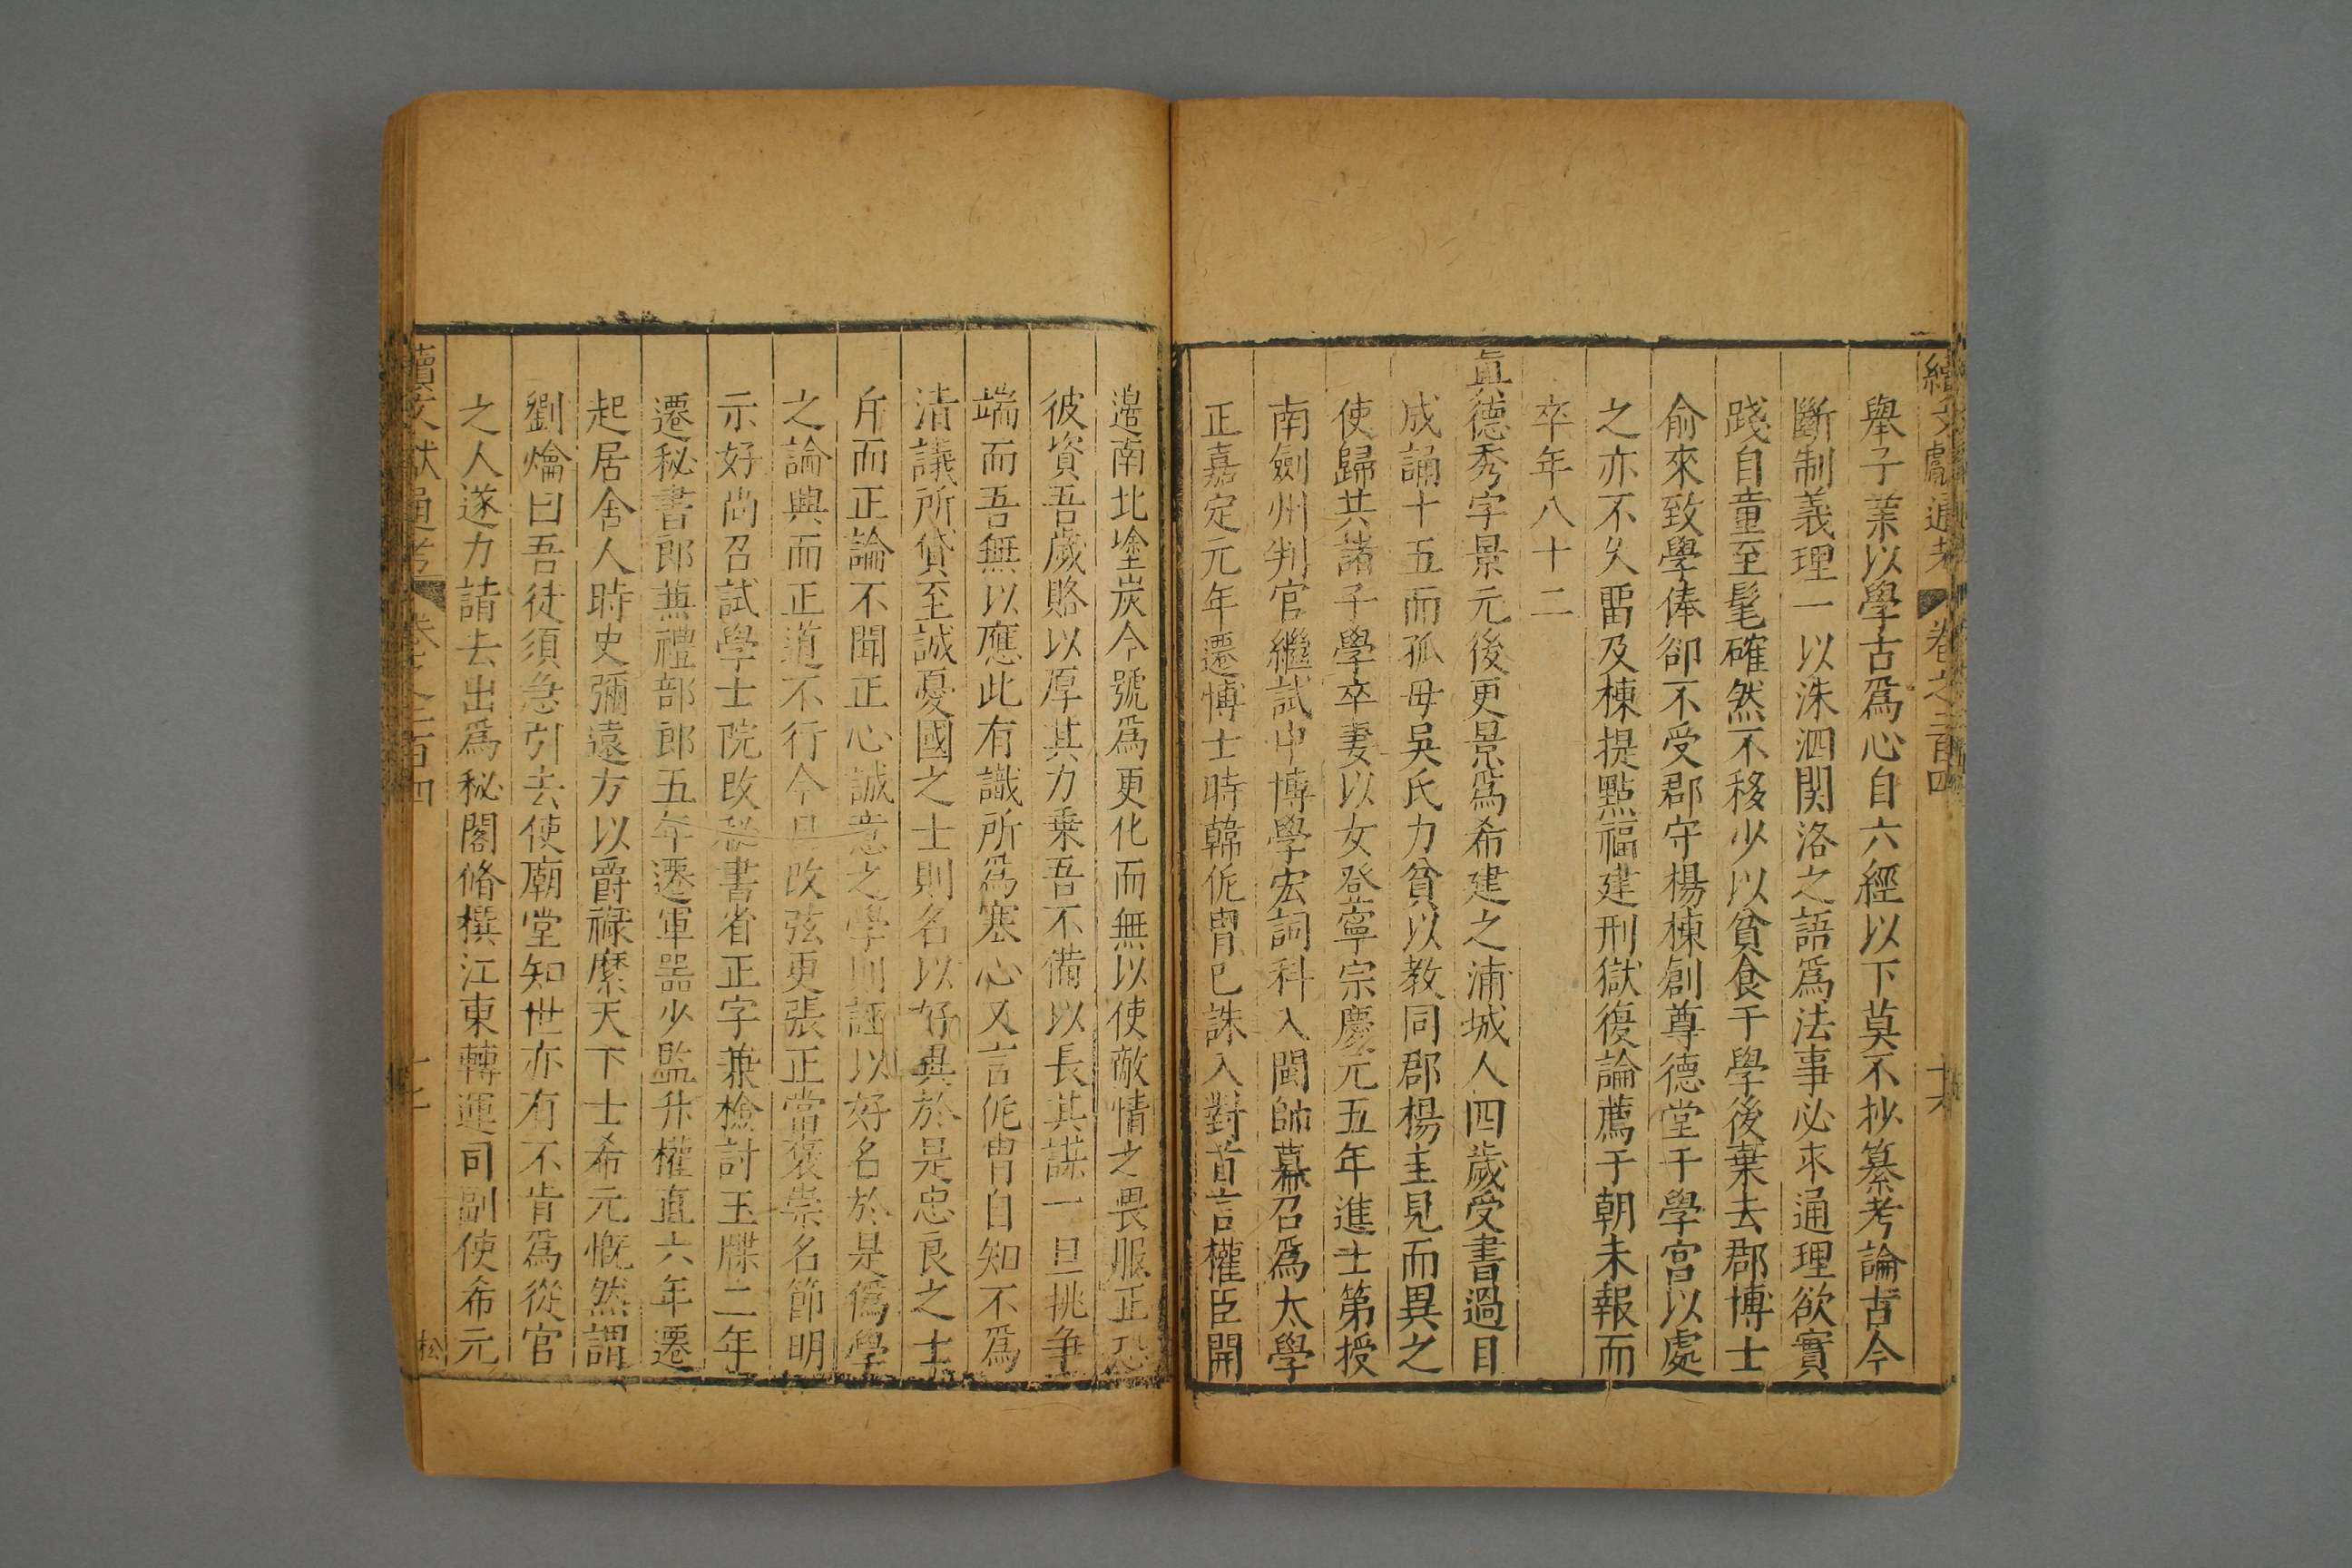 續文獻通考 卷之二百四 十六
舉子業以學古爲心自六經以下莫不抄纂考論古今
斷制義理一以洙泗関洛之語爲法事必求通理欲實
踐自童至髦確然不移少以貧食于學後棄去郡博士
俞來致學俸卻不受郡守楊棟創尊德堂于學宮以處
之亦不久畱及棟提點福建刑獄復論薦于朝未報而
卒年八十二
眞德秀字景元後更景爲希建之浦城人四歲受書過目
成誦十五而孤母吳氏力貧以教同郡楊圭見而異之
使歸共諸子學卒妻以女登寧宗慶元五年進士第授
南劍州判官繼試中博學宏詞科入閩帥幕召爲太學
正嘉定元年遷博士時韓侂冑已誅入對首言權臣開
邉南北塗炭今號爲更化而無以使敵情之畏服正恐
彼資吾歲賂以厚其力乗吾不備以長其謀一旦挑爭
端而吾無以應此有識所爲寒心又言侂冑自知不爲
清議所貸至誠憂國之士則名以好異於是忠良之士
斥而正論不聞正心誠意之學則誣以好名於是僞學
之論興而正道不行今日改弦更張正當褒崇名節明
示好尚召試學士院改秘書省正字兼檢討玉牒二年
遷秘書郎兼禮部郎五年遷軍噐少監升權直六年遷
起居舍人時史彌遠方以爵祿縻天下士希元慨然謂
劉爚曰吾徒須急引去使廟堂知世亦有不肯爲從官
之人遂力請去出爲秘閣脩撰江東轉運司副使希元
續文獻通考 卷之二百四 十七 松